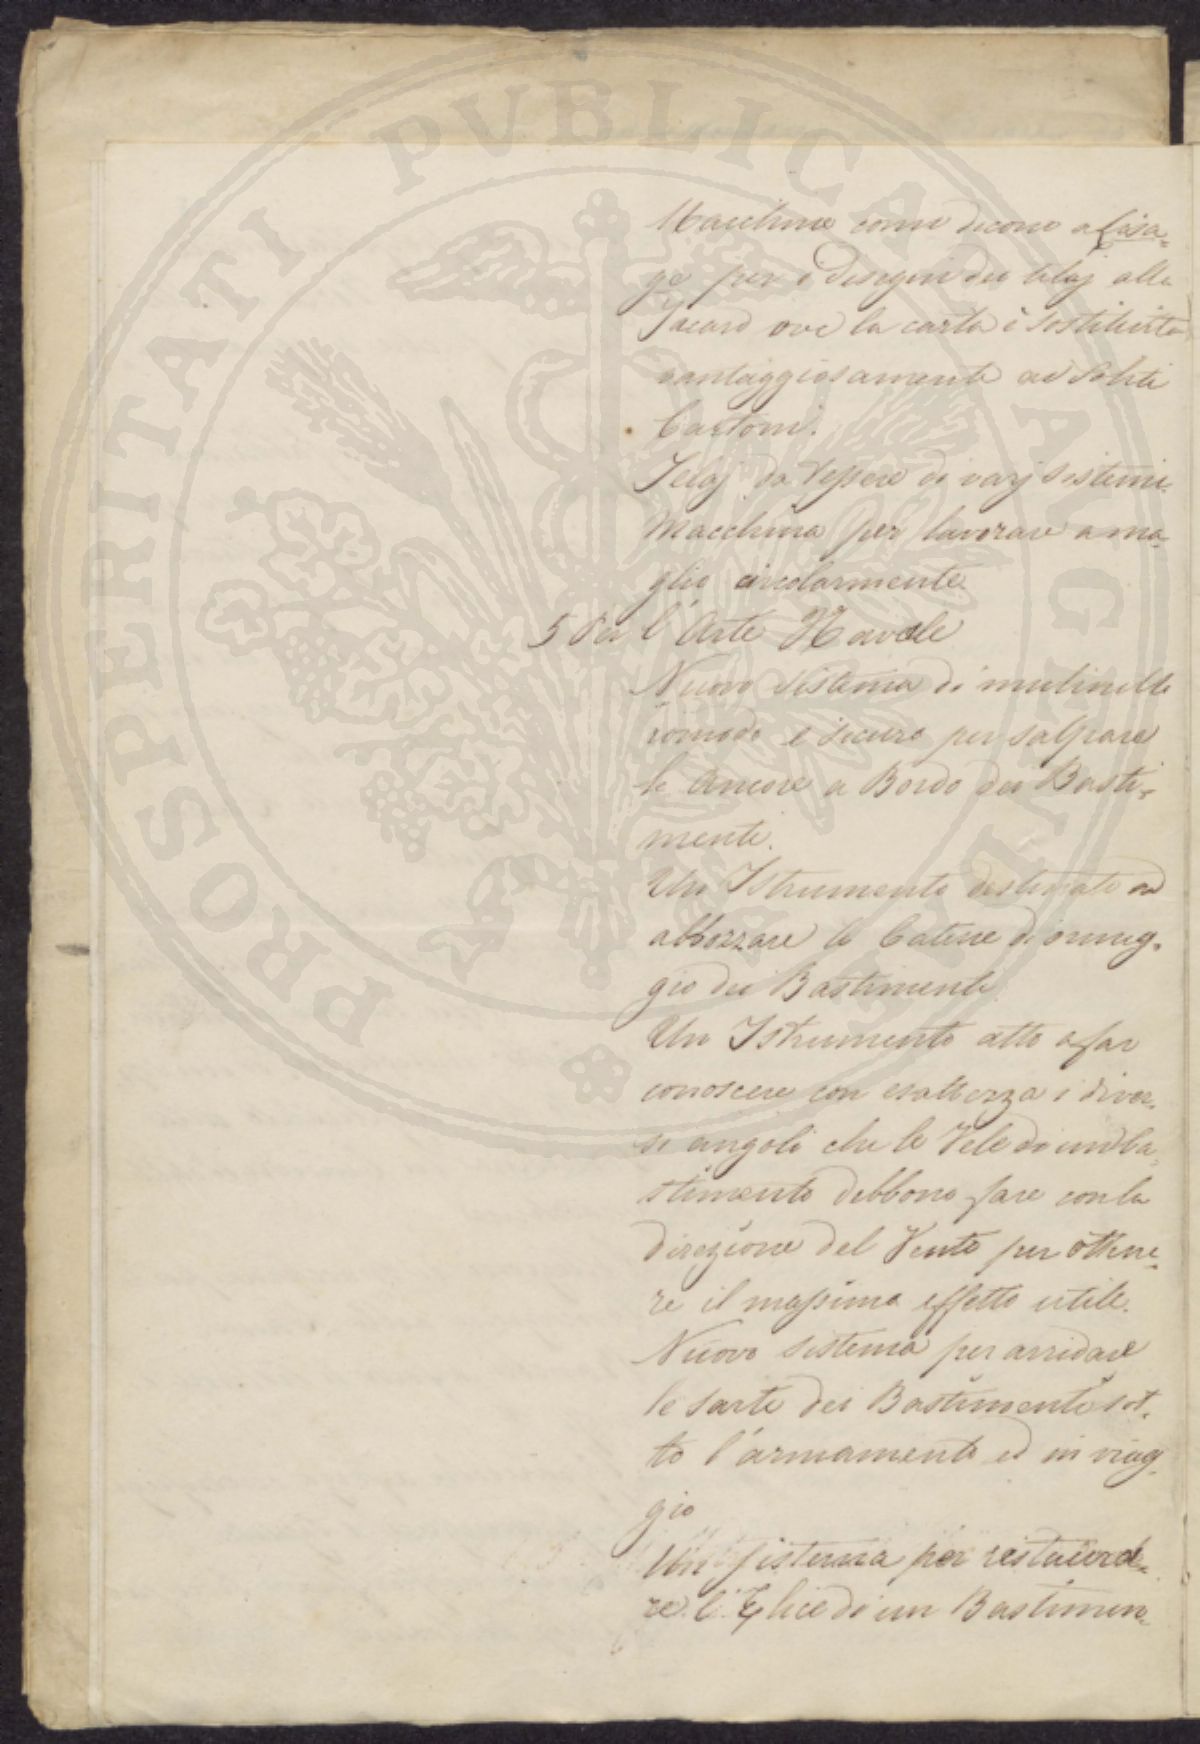 Macchine come dicono a Lisa-
ge per i disegni dei telaj alla
Jacard ove la carta è sostituita
vantaggiosamente ai soliti
Cartoni.
Telaj da Tessere di varj sistemi.
Macchina per lavorare a ma-
glia circolarmente.
5 Per l'Arte Navale
Nuovo sistema di mulinello
comodo e sicuro per salpare
le Ancore a Bordo dei Basti-
menti.
Un Istrumento destinato ad
abbozzare le Catene di ormeg-
gio dei Bastimenti
Un Istrumento atto a far
conoscere con esattezza i diver-
si angoli che le Vele di un Ba-
stimento debbono fare con la
direzione del Vento per ottene-
re il massimo effetto utile.
Nuovo sistema per arridare
le sarte dei Bastimenti sot-
to l'armamento ed in viag-
gio
Un sistema per
re l'Elice di un Bastimen-
PROSPERITATI PUBLICAE AUGENDAE